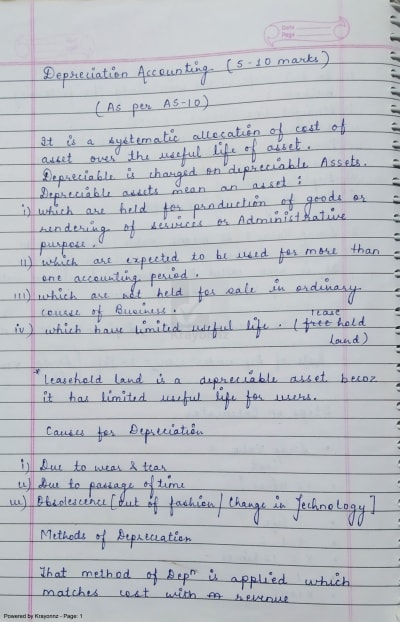 Date
Page
Depreciation Accounting. (5-10 marks)
(As per AS-10)
It is a systematic allocation of cost of
asset over the useful life of asset.
Depreciable is charged on depreciable Assets.
Depreciable assets mean an asset :
i) which are held for production of goods or
rendering of services or Administrative
purpose.
ii) which are expected to be used for more than
one accounting period.
iii) which are not held for sale in ordinary
course of Business.
iv) which have limited useful life. (lease hold
land)
*Leasehold land is a depreciable asset becoz
it has limited useful life for users.
Causes for Depreciation
i) Due to wear & tear
ii) Due to passage of time
iii) Obsolescence [out of fashion / Change in Technology]
Methods of Depreciation
That method of Depn is applied which
matches cost with revenue
Powered by Krayonnz - Page: 1